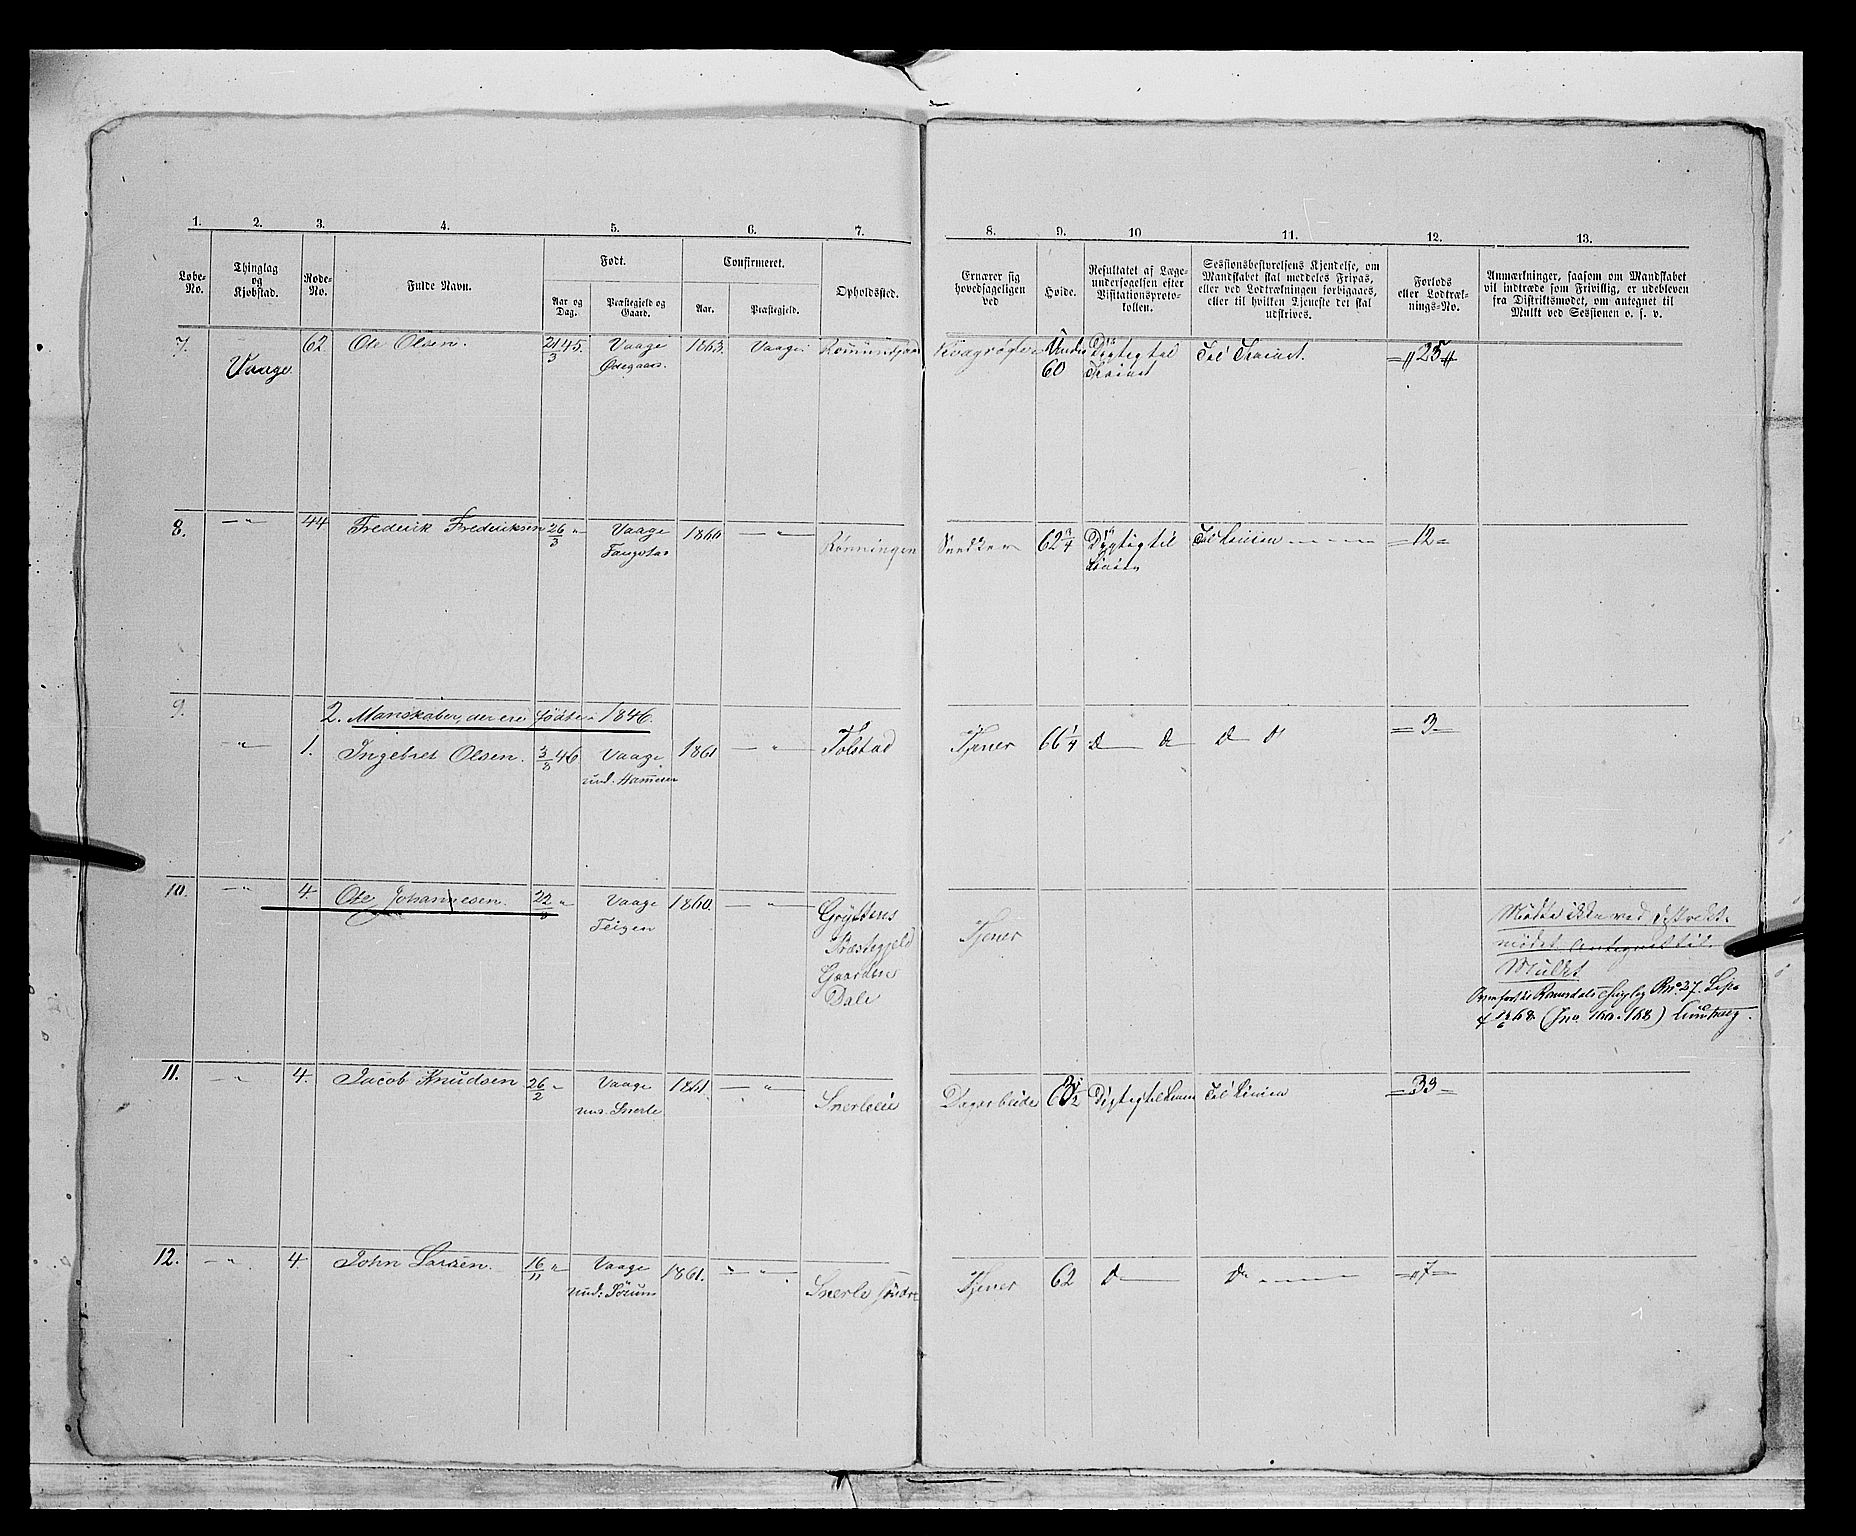 1. 2. 3. 4. 5. 6. 7. 8. 9. 10 11. 12. 13.
Løbe-No.
Thinglag og Kjøbstad.
Rode-No.
Fulde Navn.
Født.
Aar og Dag.
Præstegjeld og Gaard.
Confirmeret.
Aar.
Præstegjeld.
Opholdssted.
Ernærer sig hovedsageligen ved
Høide.
Resultatet af Læge-
undersøgelsen efter
Visitationsproto-
kollen.
Sessionsbestyrelsens Kjendelse, om
Mandskabet skal meddeles Fripas,
eller ved Lodtrækningen forbigaaes,
eller til hvilken Tjeneste det skal
udskrives.
Forlods
eller Lodtræk-
nings-No.
Anmærkninger, saasom om Mandskabet
vil indtræde som Frivillig, er udebleven
fra Distriktsmødet, om antegnet til
Mulkt ved Sessionen o. s. v.
7. Vaage 62. Ole Olsen. 21/3 45. Vaage 1863. Vaage. Under 60 Dygtig til Trainet Til Trainet. =„25„=
Ødegaard.
8. —„— 44 Frederik Frederiksen 26/3 „ Vaage 1860 —„— Rønningen Snedker 62 3/4 Dygtig til Linien Til Linien =12=
9. 2. Manskaber, der ere fødte i 1846.
—„— 1. Ingebret Olsen. 3/8 46 Vaage 1861 —„— Tolstad Tjener 66 1/4 D— D D D =3=
und: Hammeren
10. —„— 4. Ole Johannesen. 22/8 „ Vaage 1860. —„— Grÿttens Tjener
Teigen Præstegjeld
Gaarden
Dale
Mødte ikke ved distrikts-
mødet. Antegnet til
Mulkt.
Romsdals No 27.
11. —„— 4. Jacob Knudsen 26/2 „ Vaage 1861. —„— Snerleeie Dagarbeide Dygtig til Linien Til Linien =33=
und. Snerle
12. —„— 4. John Larsen. 16/11 „ Vaage 1861. —„— Snerle søndre Tjener 62 D— D— =„7=
und: Sörum